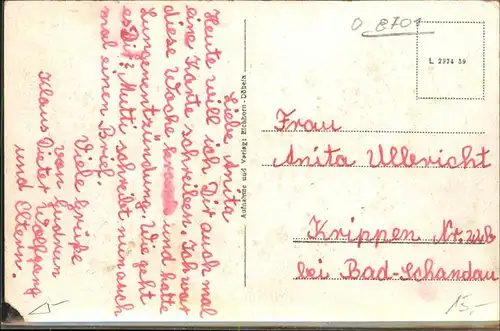 Liebe Anita
Heute will ich Dir auch mal
eine Karte schreiben. Ich war
diese Woche und hatte
Lungenentzündung. Wie geht
es Dir? Mutti schreibt nun auch
mal einen Brief.
Viele Grüße
von Gudrun
Klaus Dieter Wolfgang
und Eltern.
Aufnahme und Verlag: Eichhorn-Döbeln
0 8701
L 2974 56
Frau
Anita Ullericht
Krippen Nr.
bei Bad-Schandau
15,-